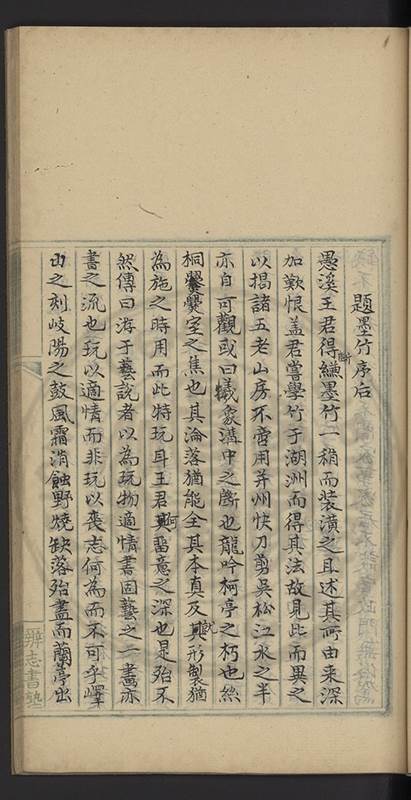 題墨竹序后
愚溪王君得斷縑墨竹一稍而裝潢之且述其所由来深
加歎恨盖君嘗學竹于湖洲而得其法故見此而異之
以揭諸五老山房不啻用并州快刀剪吳松江水之半
亦自可觀或曰犧象溝中之斷也龍吟柯亭之朽也絲
桐爨室之焦也其淪落猶能全其本真及其形製猶
為施之時用而此特玩耳王君何留意之深也是殆不
然傳曰游于藝說者以為玩物適情書固藝之一畫亦
書之流也玩以適情而非玩以喪志何為而不可乎嶧
山之刻岐陽之鼓風霜消蝕野燒缺落殆盡而蘭亭出
辨志書塾